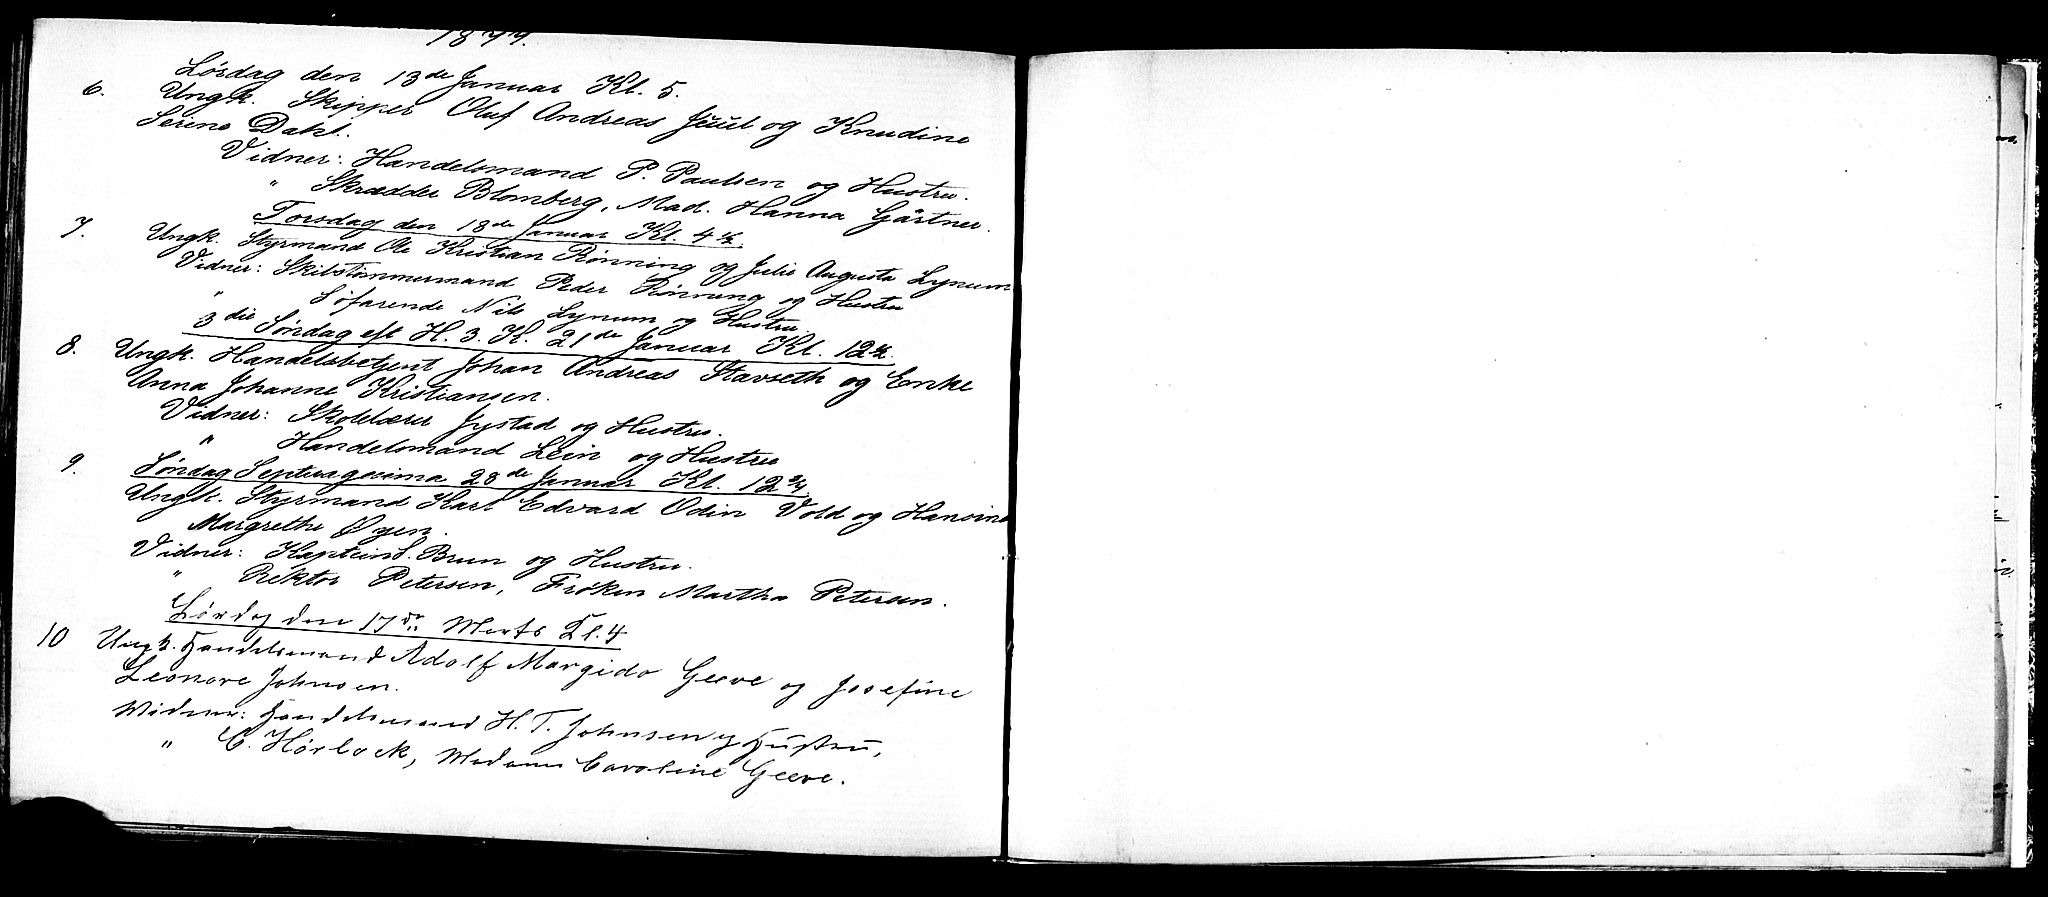 1877.
Lørsdag den 13de Januar Kl. 5.
6. Ungk. Skipper Oluf Andreas Juul og Knudine
Serine Dahl.
Vidner: Handelsmand P. Paulsen og Hustru.
" Skrædder Blomberg, Mad. Hanna Gärtner.
Torsdag den 18de Januar Kl. 4 ½.
7. Ungk. Styrmand Ole Kristian Rønning og Julie Augusta Lynum
Vidner: Skibstømmermand Peder Rønning og Hustru
" Søfarende Nils Lynum og Hustru.
3die Søndag eft. H. 3. K. 21de Januar Kl. 12 ½.
8. Ungk. Handelsbetjent Johan Andreas Stavseth og Enke
Anna Johanne Kristiansen.
Vidner: Skolelærer Jystad og Hustru.
" Handelsmand Lein og Hustru
Søndag Septuagesima 28de Januar Kl. 12 ¾.
9. Ungk. Styrmand Karl Edvard Odin Vold og Hansine
Margrethe Øyen.
Vidner: Kaptein S. Brun og Hustru.
" Rektor Petersen, Frøken Martha Petersen.
Lørdag den 17de Marts Kl. 4
10 Ungk. Handelsmand Adolf Margido Geeve og Josefine
Leonore Johnsen.
Widner: Handelsmand H. T. Johnsen og Hustru,
" C. Hørlock, Madame Caroline Geeve.